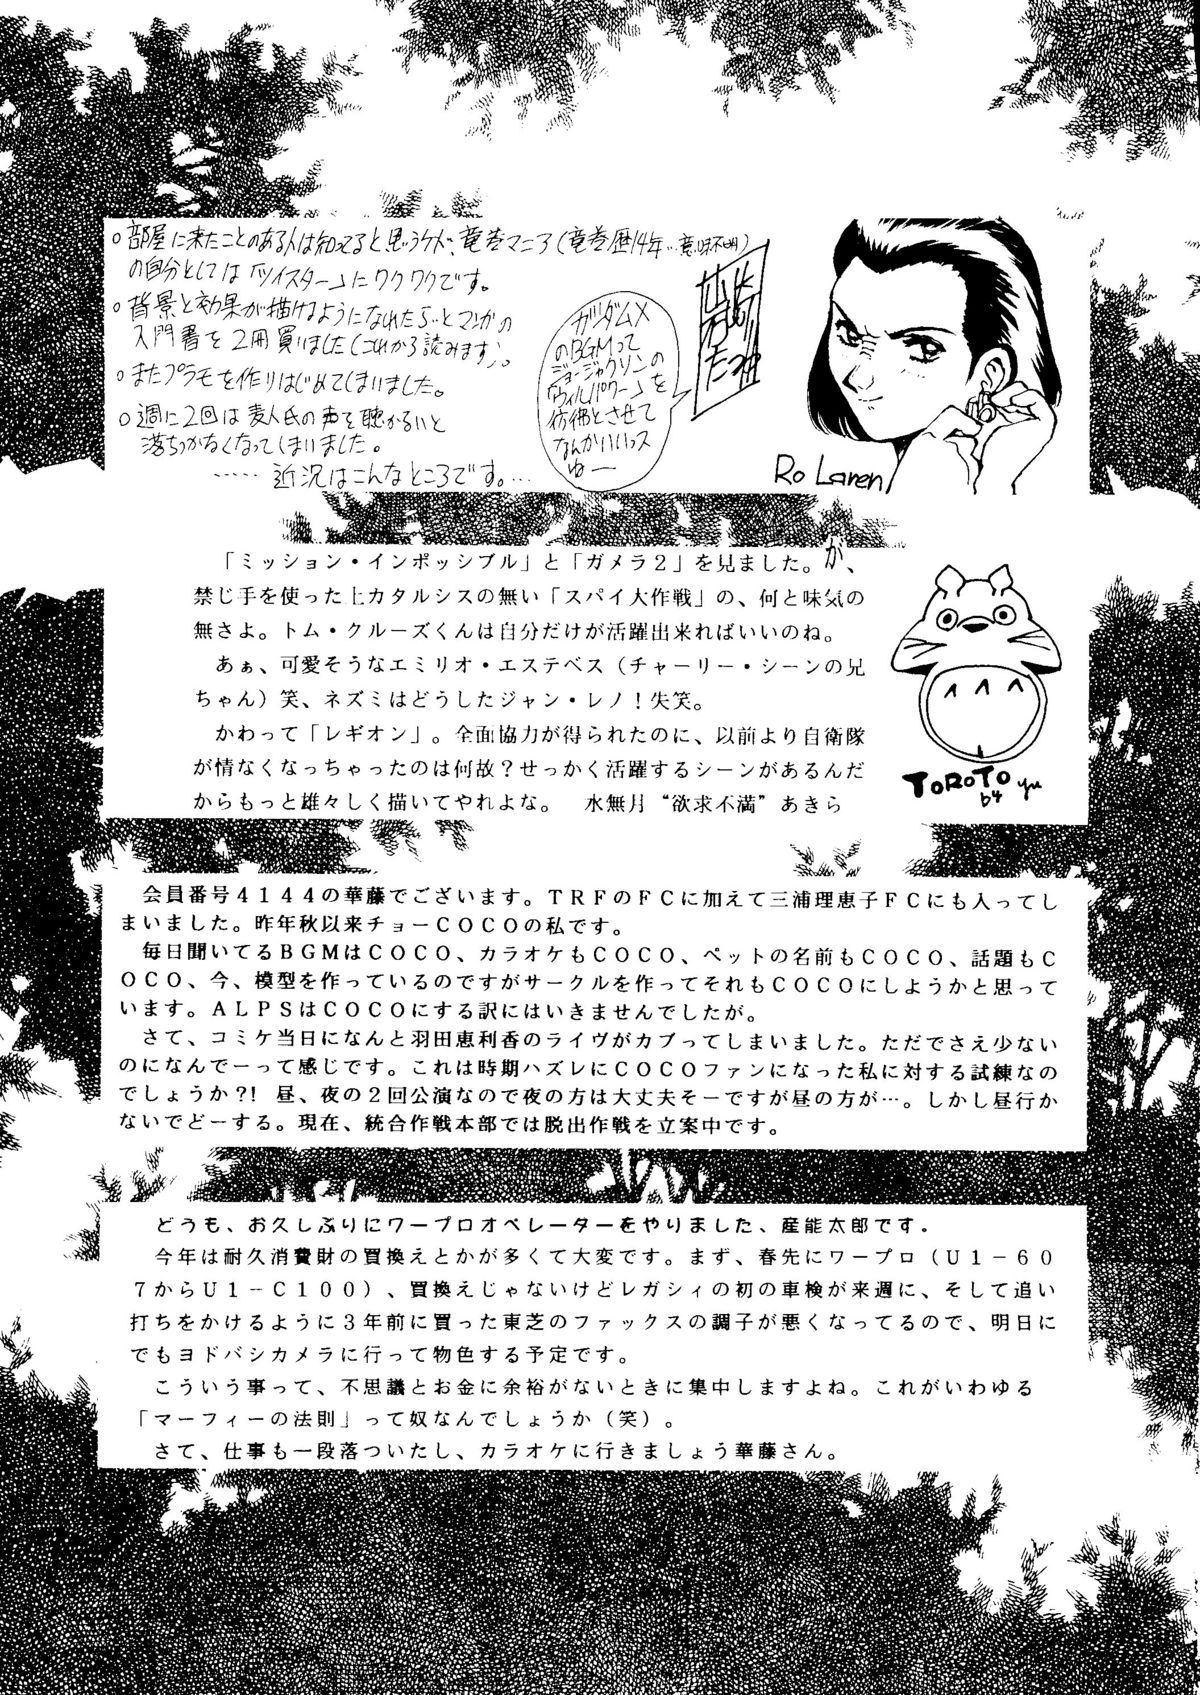 ○部屋に来たことのある人は知ってると思うケド、竜巻マニア(竜巻歴14年…意味不明)
の自分としては「ツイスター」にワクワクです。
○背景と効果が描けるようになれたら…とマンガの
入門書を2冊買いました(これから読みます)。
○またプラモを作りはじめてしまいました。
○週に2回は麦人氏の声を聴かないと
落ちつかなくなってしまいました。
……近況はこんなところです。…
ガンダムX
のBGMって
ジョー・ジャクソンの
「ウィルパワー」を
彷彿とさせて
なんかいいっス
ゆー
Ro Laren
「ミッション・インポッシブル」と「ガメラ2」を見ました。が、
禁じ手を使った上カタルシスの無い「スパイ大作戦」の、何と味気の
無さよ。トム・クルーズくんは自分だけが活躍出来ればいいのね。
あぁ、可愛そうなエミリオ・エステベス(チャーリー・シーンの兄
ちゃん)笑、ネズミはどうしたジャン・レノ!失笑。
かわって「レギオン」。全面協力が得られたのに、以前より自衛隊
が情なくなっちゃったのは何故?せっかく活躍するシーンがあるんだ
からもっと雄々しく描いてやれよな。　水無月“欲求不満”あきら
TOROTO
by yu
会員番号4144の華藤でございます。TRFのFCに加えて三浦理恵子FCにも入ってし
まいました。昨年秋以来チョーCOCOの私です。
毎日聞いてるBGMはCOCO、カラオケもCOCO、ペットの名前もCOCO、話題もC
OCO、今、模型を作っているのですがサークルを作ってそれもCOCOにしようかと思って
います。ALPSはCOCOにする訳にはいきませんでしたが。
さて、コミケ当日になんと羽田恵利香のライヴがカブってしまいました。ただでさえ少ない
のになんでーって感じです。これは時期ハズレにCOCOファンになった私に対する試練なの
でしょうか?!　昼、夜の2回公演なので夜の方は大丈夫そーですが昼の方が…。しかし昼行か
ないでどーする。現在、統合作戦本部では脱出作戦を立案中です。
どうも、お久しぶりにワープロオペレーターをやりました、産能太郎です。
今年は耐久消費財の買換えとかが多くて大変です。まず、春先にワープロ(U1-60
7からU1-C100)、買換えじゃないけどレガシィの初の車検が来週に、そして追い
打ちをかけるように3年前に買った東芝のファックスの調子が悪くなってるので、明日に
でもヨドバシカメラに行って物色する予定です。
こういう事って、不思議とお金に余裕がないときに集中しますよね。これがいわゆる
「マーフィーの法則」って奴なんでしょうか(笑)。
さて、仕事も一段落ついたし、カラオケに行きましょう華藤さん。